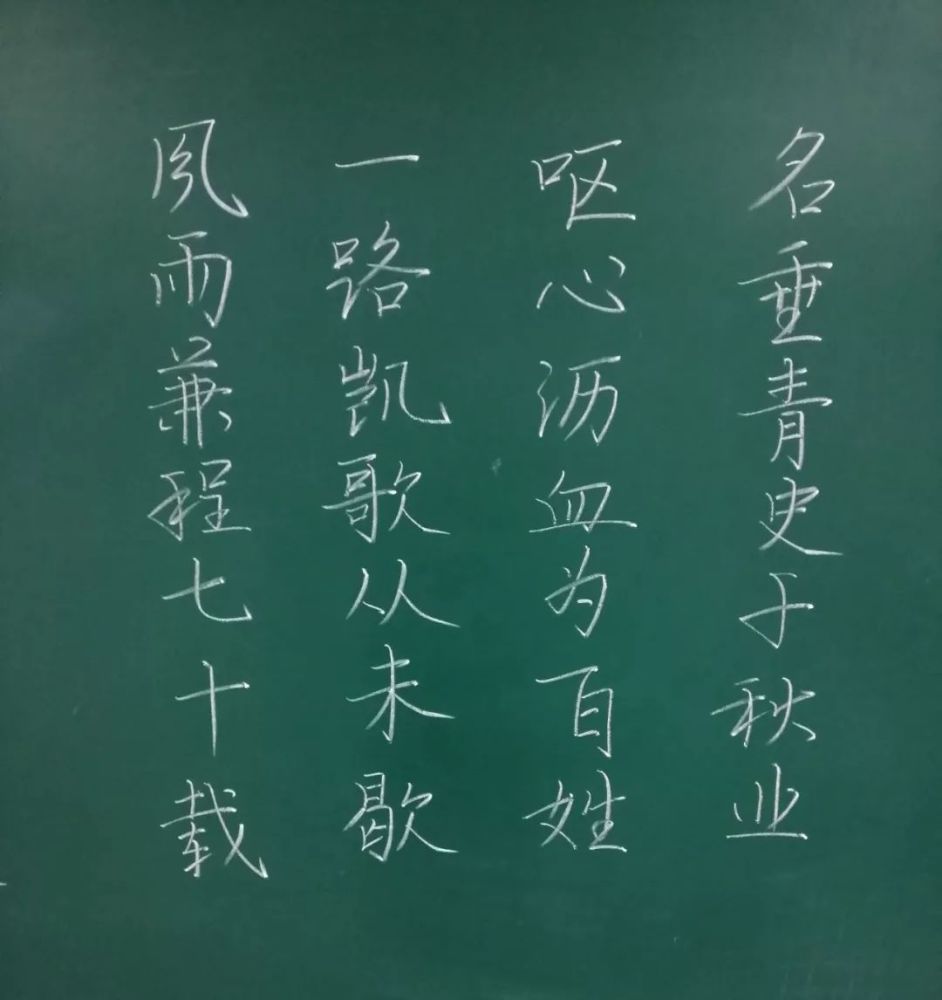 风雨兼程七十载
一路凯歌从未歇
呕心沥血为百姓
名垂青史千秋业